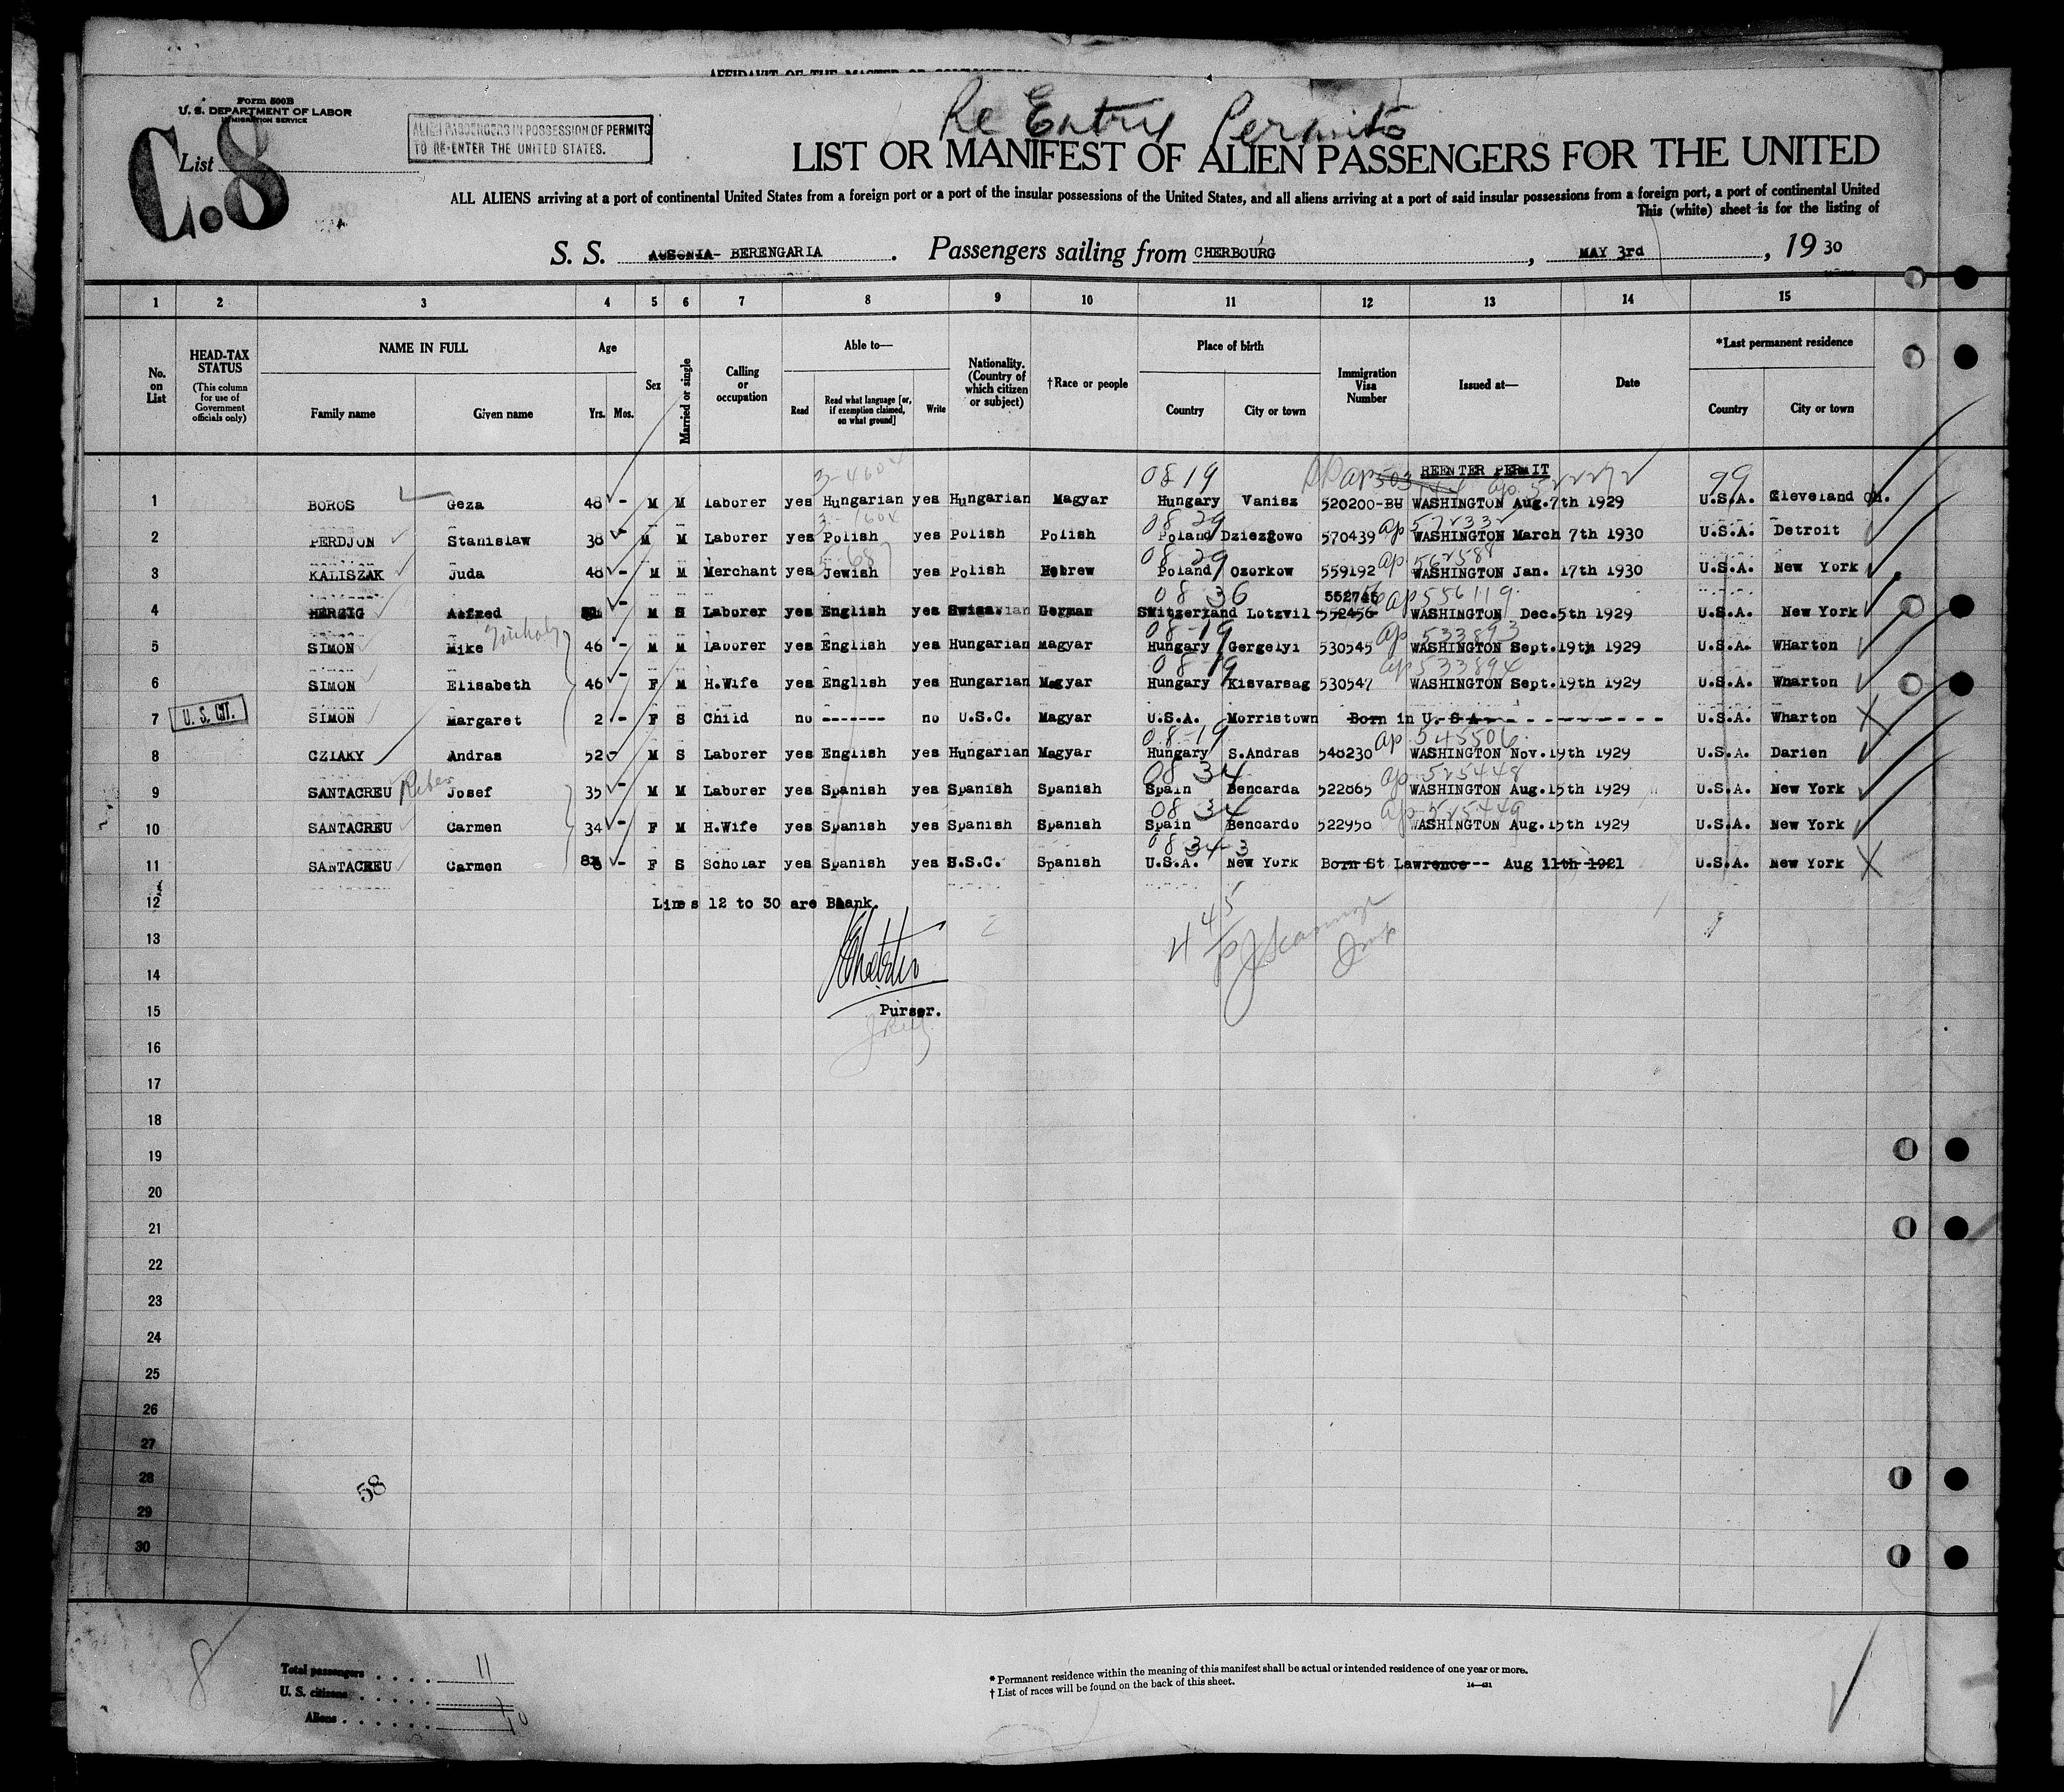 AFFIDAVIT OF THE MASTER OR
Form 500B
U. S. DEPARTMENT OF LABOR
IMMIGRATION SERVICE
List C.8
ALIEN PASSENGERS IN POSSESSION OF PERMITS
TO RE-ENTER THE UNITED STATES.
Re Entry Permits
LIST OR MANIFEST OF ALIEN PASSENGERS FOR THE UNITED
ALL ALIENS arriving at a port of continental United States from a foreign port or a port of the insular possessions of the United States, and all aliens arriving at a port of said insular possessions from a foreign port, a port of continental United
This (white) sheet is for the listing of
S. S. AUSONIA- BERENGARIA . Passengers sailing from CHERBOURG , MAY 3rd , 19 30
1 2 3 4 5 6 7 8 9 10 11 12 13 14 15
No. on List
HEAD-TAX STATUS (This column for use of Government officials only)
NAME IN FULL Family name Given name
Age Yrs. Mos.
Sex
Married or single
Calling or occupation
Able to— Read Read what language [or, if exemption claimed, on what ground] Write
Nationality. (Country of which citizen or subject)
†Race or people
Place of birth Country City or town
Immigration Visa Number
Issued at—
Date
*Last permanent residence Country City or town
3-4604 0819 REENTER PERMIT 99
1 BOROS Geza 48 - M M Laborer yes Hungarian yes Hungarian Magyar Hungary Vanisz 520200-BU WASHINGTON Aug.7th 1929 U.S.A. Cleveland Oh.
08 29 ap 572332
2 PERDJON Stanislaw 38 - M M Laborer yes Polish yes Polish Polish Poland Dziezgowo 570439 WASHINGTON March 7th 1930 U.S.A. Detroit
08 29 ap 562588
3 KALISZAK Juda 48 - M M Merchant yes Jewish yes Polish Hebrew Poland Ozorkow 559192 WASHINGTON Jan. 17th 1930 U.S.A. New York
08 36 552746 ap 556119
4 HERZIG Alfred - M S Laborer yes English yes German Switzerland Lotzvil 552456 WASHINGTON Dec.5th 1929 U.S.A. New York
08-19 ap 533893
5 SIMON Mike 46 - M M Laborer yes English yes Hungarian Magyar Hungary Gergelyi 530545 WASHINGTON Sept.19th 1929 U.S.A. WHarton
08-19 ap 533894
6 SIMON Elisabeth 46 - F M H.Wife yes English yes Hungarian Magyar Hungary Kisvarsag 530547 WASHINGTON Sept.19th 1929 U.S.A. Wharton
7 U. S. CIT. SIMON Margaret 2 - F S Child no ------- no U.S.C. Magyar U.S.A. Morristown Born in U. S A- - - - - - - - - - - U.S.A. Wharton
08-19 ap 545506
8 CZIAKY Andras 52 - M S Laborer yes English yes Hungarian Magyar Hungary S.Andras 548230 WASHINGTON Nov.19th 1929 U.S.A. Darien
08 34 ap 525448
9 SANTACREU Josef 35 - M M Laborer yes Spanish yes Spanish Spanish Spain Bencarda 522865 WASHINGTON Aug.15th 1929 U.S.A. New York
08 34 ap 525449
10 SANTACREU Carmen 34 - F M H.Wife yes Spanish yes Spanish Spanish Spain Bencardo 522958 WASHINGTON Aug.15th 1929 U.S.A. New York
08 34-3
11 SANTACREU Carmen 8 - F S Scholar yes Spanish yes U.S.C. Spanish U.S.A. New York Born St Lawrence--- Aug 11th 1921 U.S.A. New York
12 Lines 12 to 30 are Blank.
13
14
15 Purser.
16
17
18
19
20
21
22
23
24
25
26
27
28
29
30
58
8
Total passengers . . . . 11
U. S. citizens . . . . . 1
Aliens . . . . . . 10
* Permanent residence within the meaning of this manifest shall be actual or intended residence of one year or more.
† List of races will be found on the back of this sheet.
14—421